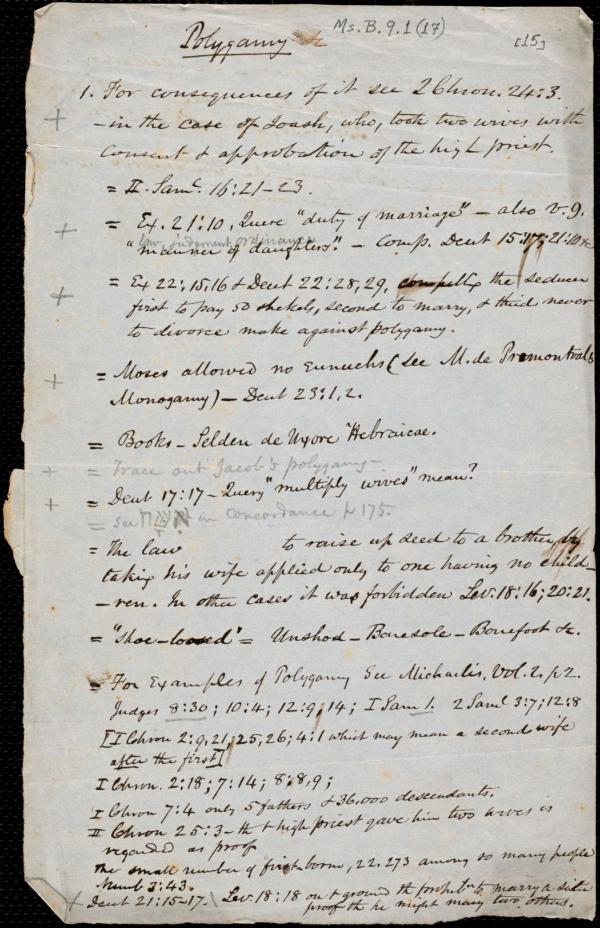 Polygamy Ms. B. 9. 1 (17) [15]
1. For consequences of it see 2 Chron. 24:3.
- in the case of Joash, who, took two wives with
consent & approbation of the high priest.
= II. Saml. 16:21-23.
= Ex. 21:10, Quere "duty of marriage" - also v. 9.
law judgment ordinance
"manner of daughters" - Comp. Deut 15:17; 21:10 &c
= Ex 22:15,16 & Deut 22:28,29, compellg the seducer
first to pay 50 shekels, second to marry, & third never
to divorce make against polygamy.
= Moses allowed no Eunuchs (see M. de Premontval's
Monogamy) - Deut 23:1,2.
= Books - Selden de Uxore Hebraicae.
= Trace out Jacob's polygamy -
= Deut 17:17 - Query "multiply wives" mean?
= See in concordance p 175.
= The law to raise up seed to a brother by
taking his wife applied only to one having no child-
-ren. In other cases it was forbidden Lev. 18:16; 20:21.
= "Shoe-loosed" = Unshod - Baresole - Barefoot &c.
= For Examples of Polygamy See Michaelis, Vol. 2. p 2.
Judges 8:30; 10:4; 12:9,14; I Sam 1. 2 Saml 3:7; 12:8
[I Chron 2:9,21,25,26; 4:1 which may mean a second wife
after the first]
I Chron. 2:18; 7:14; 8:8,9;
I Chron 7:4 only 5 fathers & 36,000 descendants.
II Chron 25:3 - tht high priest gave him two wives is
regarded as proof
The small number of first-born, 22,273 among so many people
Numb 3:43.
Deut 21:15-17. Lev. 18:18 on t ground tht to marry a sister
proof tht he might marry two others.